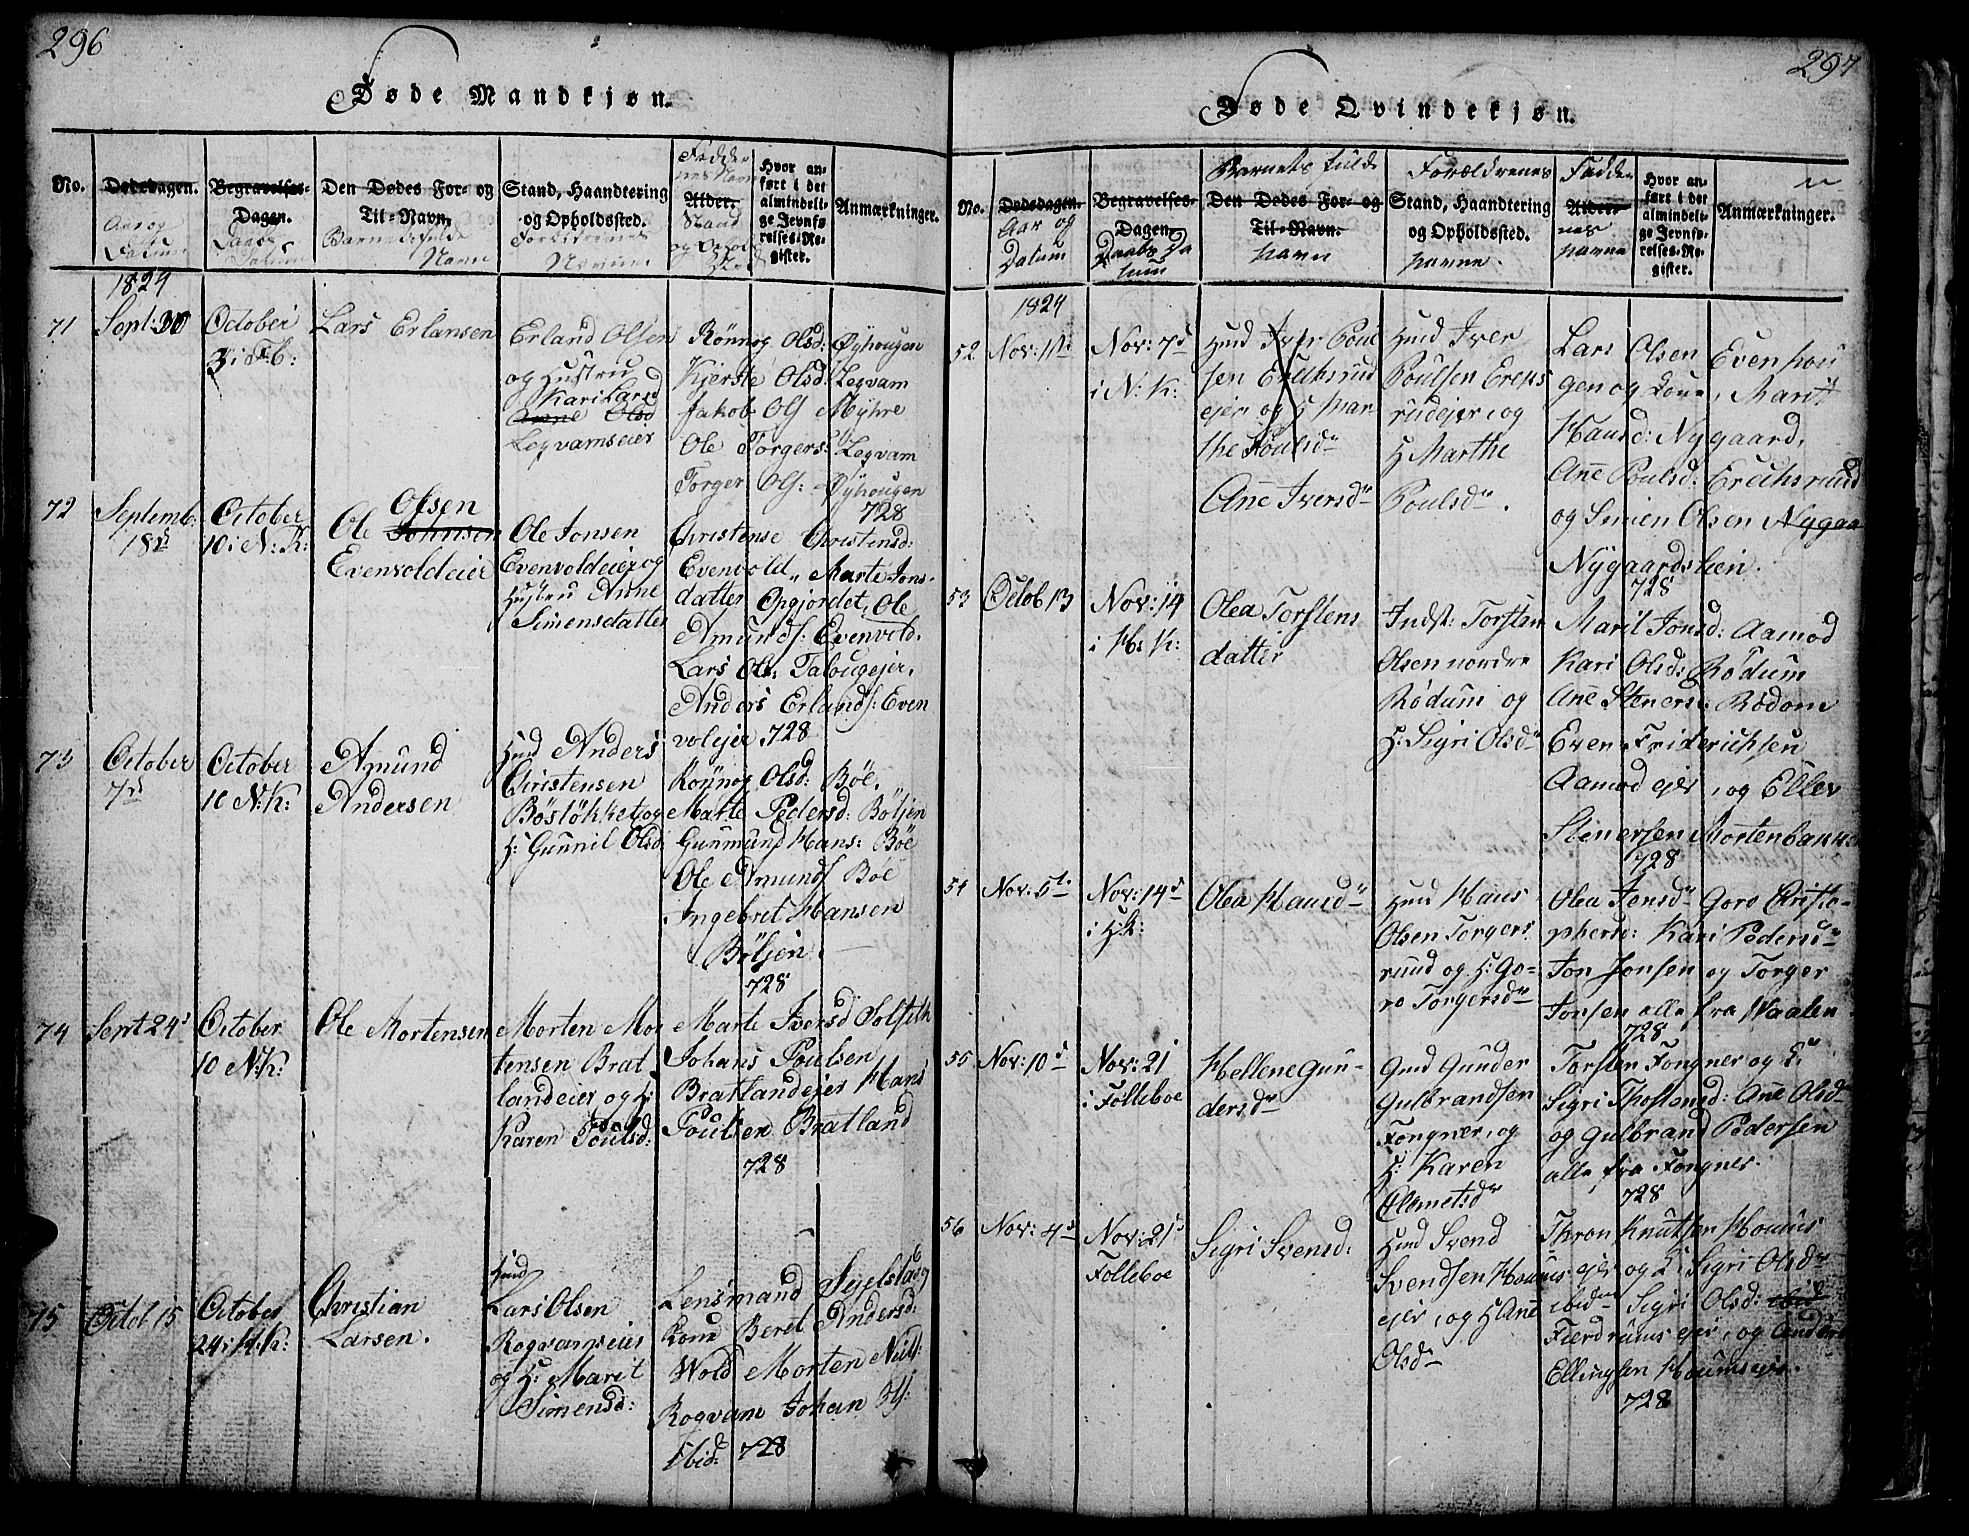 296
Døde Mandkjøn.
No.
Dødsdagen.
Aar og
Datum
Begravelses-
Dagen.
Daabs
Datum
Den Dødes For- og
Til-Navn.
Barnets fulde
Navn
Stand, Haandtering
og Opholdssted.
Forældrenes
Navne
Faddernes Navn
Alder.
Stand
og Opholds
Sted
Hvor an-
ført i det
almindeli-
ge Jevnfø-
relses-Re-
gister.
Anmærkninger.
1824
71
Sept: 30
October
3 i F.b:
Lars Erlansen
Erland Olsen
og Hustru
Kari Larsd
Anne Olsd
Legvamseier
Rönnog Olsd: Øyhougen
Kjerste Olsd: Legvam
Jakob Ols Myhre
Ole Torgers: Legvam
Torger Ols: Øyhougen
728
72
Septemb.
18d
October
10 i N: K:
Ole Olsen
Johnsen
Evenvoldeier
Ole Jonsen
Evenvoldeier og
Hustru Anne
Simensdatter
Christense Christensd:
Evenvold, Marte Jons-
datter Opgjordet, Ole
Amunds: Evenvold,
Lars Ols: Talougejer,
Anders Erlands: Even
volejer 728
73
October
7d
October
10 N: K:
Amund
Andersen
Hmd Anders
Christensen
Bösløkket og
H: Gunnil Olsd
Rönnog Olsd: Böe,
Marte Pedersd: Böljen
Gunmund Hans: Böe
Ole Amunds Böe
Ingebret Hansen
Böljen.
728
74
Sept 24d
October
10 N: K:
Ole Mortensen
Morten Mor
tensen Brat
landeier og H:
Karen Poulsd:
Marte Iversd Solseth
Johans Poulsen
Bratlandeier Hans
Poulsen Bratland
728
75
Octob 15
October
24 i H: K:
Christian
Larsen.
Hmd
Lars Olsen
Rogvamseier
og H: Marit
Simensd:
Lensmand Segelstad og
Kone Beret Andersd:
Wold Morten Nils:
Rogvam Johan Ols:
Ibid: 728
297
Døde Qvindekjøn.
No.
Dødsdagen.
Aar og
Datum
Begravelses-
Dagen.
Daabs Da
tum
Barnets fulde
Den Dødes For- og
Til-Navn.
Navn
Forældrenes
Stand, Haandtering
og Opholdssted.
Navne.
Fadder
Alder.
nes
Navne
Hvor an-
ført i det
almindeli-
ge Jevnfø-
relses-Re-
gister.
Anmærkninger.
1824
52
Nov: 1ste
Nov: 7d
i N: K:
Hmd Iver Poul
sen Eriksrud
ejer og H Mar
the Poulsdr
Ane Iversdr
Hmd Iver
Poulsen Ereks
rudejer, og
H Marthe
Poulsdr.
Lars Olsen Evenhou
gen og Kone, Marit
Hansd: Nygaard,
Ane Poulsd: Erichsruud
og Simen Olsen Nygaa
Nygaardslien.
728
53
Octob 13
Nov: 14
i H: K:
Olea Torstens
datter
Indst: Torsten
Olsen nordre
Rödum og
H: Sigri Olsdr
Marit Jonsd: Aamod
Kari Olsd: Rödum
Ane Steners: Rödom
Even Friderichsen
Aamod ejer, og Ellev
Stenersen Mortenbakken
728
54
Nov: 5te
Nov: 14d
i H k:
Olea Hansdr
Hmd Hans
Olsen Torgers
ruud og H: Go-
ro Torgersdr
Olea Jonsdr Goro Christo-
phersd: Kari Pedersdr
Jon Jonsen og Torger
Jonsen alle fra Waalen
728
55
Nov: 10d
Nov: 21
i Folleboe
Hellene Gun-
dersdr
Gmd Gunder
Gulbrandsen
Fongner, og
H: Karen
Olametsdr
Torsten Fongner og K:
Sigri Thostensd: Ane Olsdr
og Gulbrand Pedersen
alle fra Fongner.
728
56
Nov: 4d
Nov: 21d
Folleboe
Sigri Svensd:
Hmd Svend
Svendsen Houms
ejer, og H Ane
Olsdr
Thron Knutsen Houms
ejer og K Sigri Olsdr
ibidem Sigri Olsd: ibid
Fierdrums ejer, og Anders
Ellingsen Houmsejer.
728